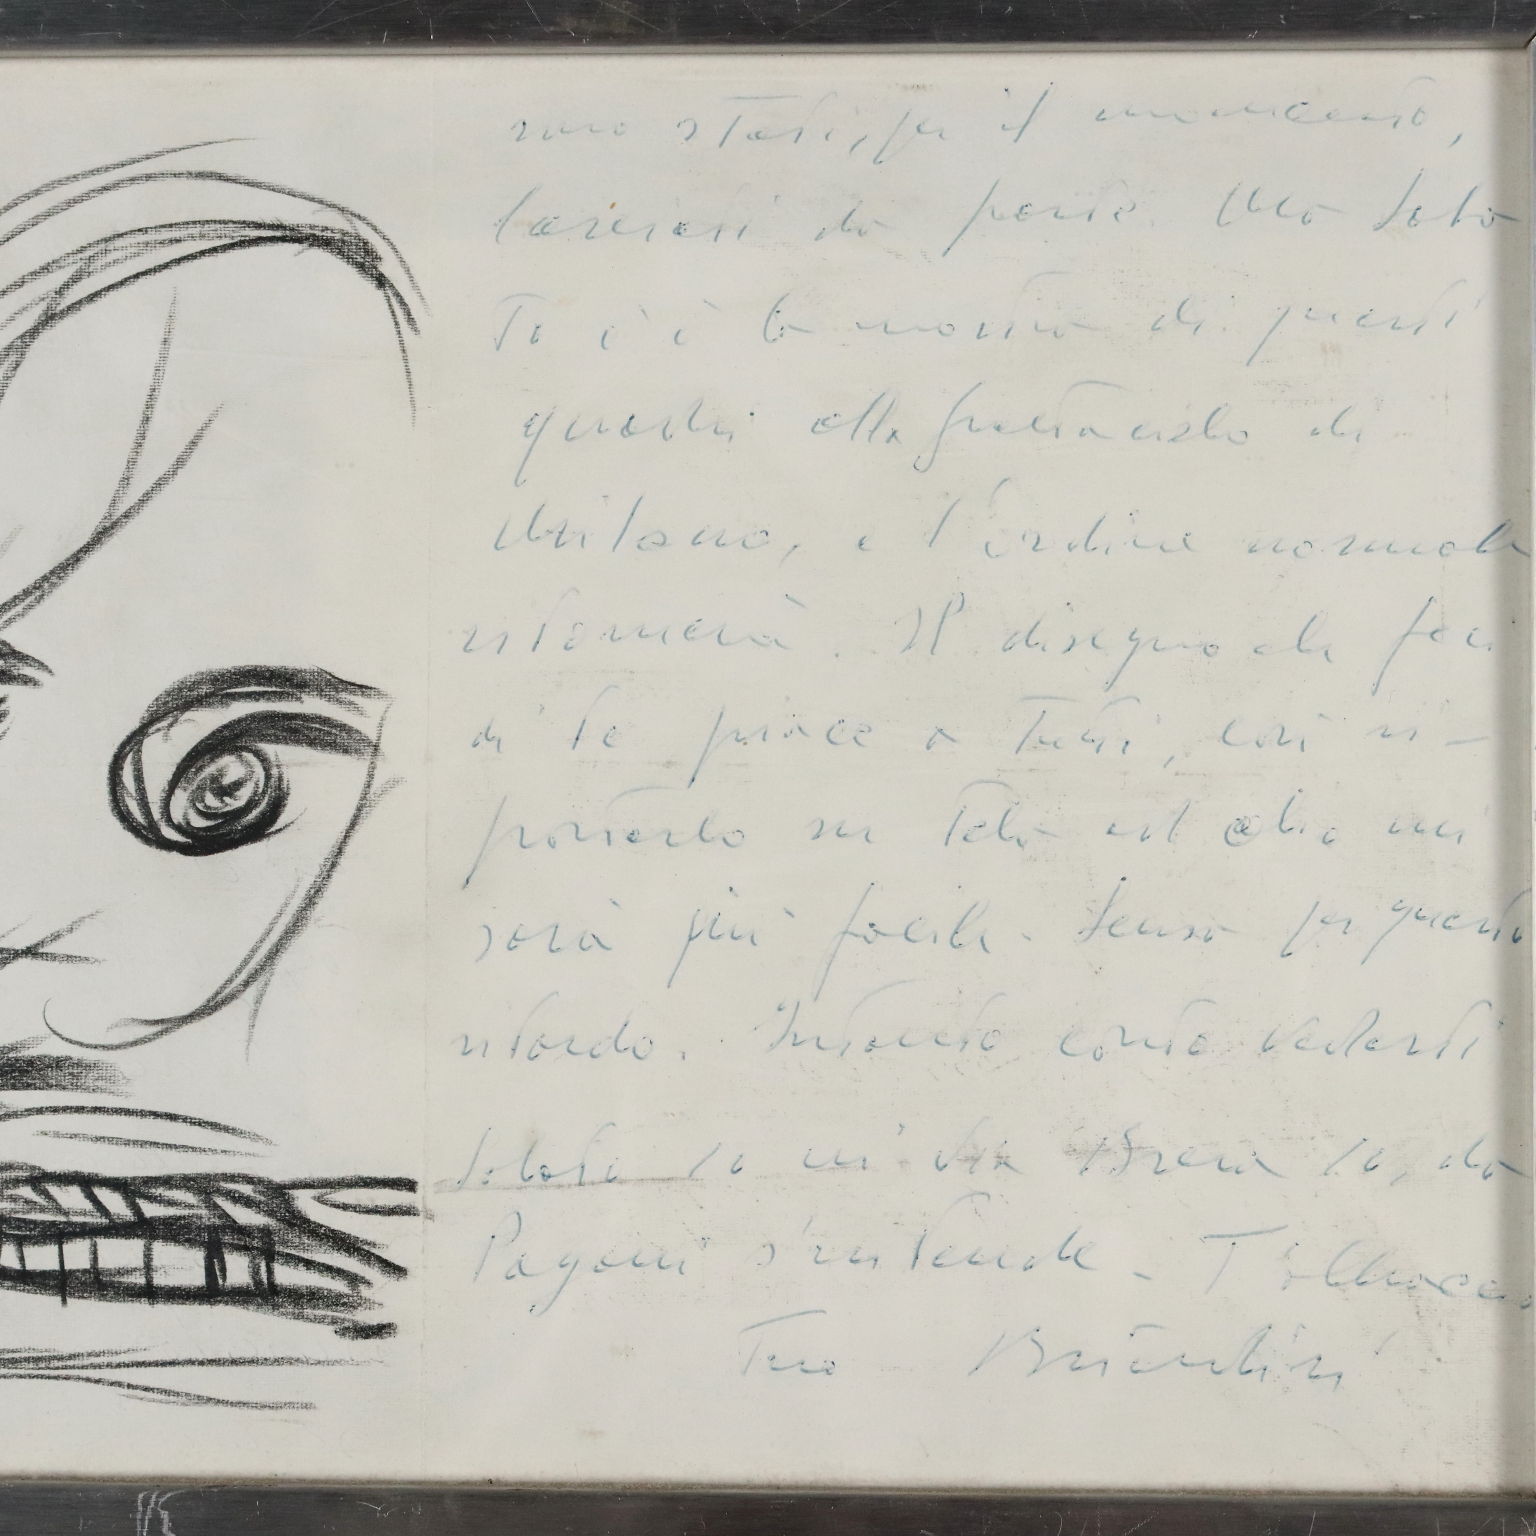 sono stati, per il momento,
lasciati da parte. Ma sabato
10 c'è la mostra di questi
quadri alla permanente di
Milano, e l'ordine normale
ritornerà. Il disegno che feci
di te piace a tutti, così ri-
portarlo su tela ad olio mi
sarà più facile. Scusa per questo
ritardo. Intanto conto vederti
sabato 10 in via Brera 10, da
Pagani s'intende - T'abbraccio
Tuo